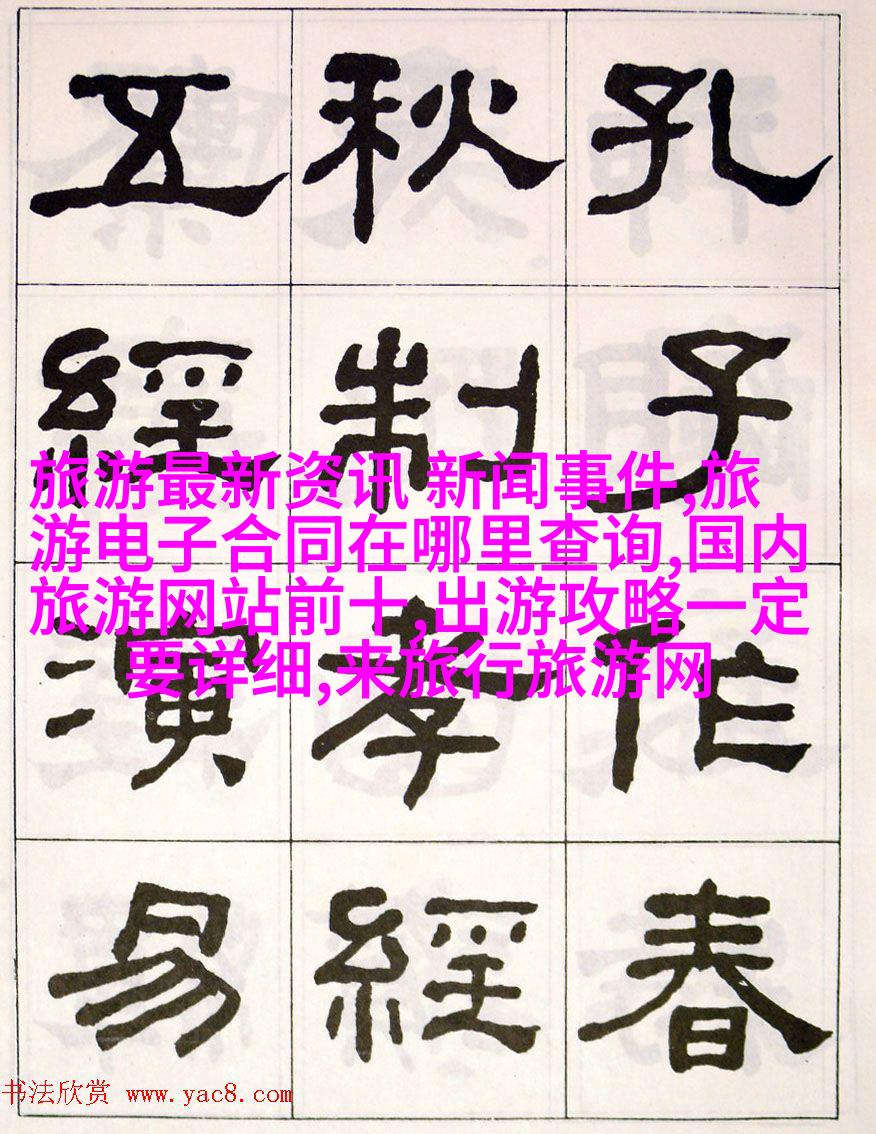 孔子作春
秋制孝經
五經演易
旅游最新资讯 新闻事件,旅
游电子合同在哪里查询,国内
旅游网站前十,出游攻略一定
要详细,来旅行旅游网
书法欣赏 www.yac8.com